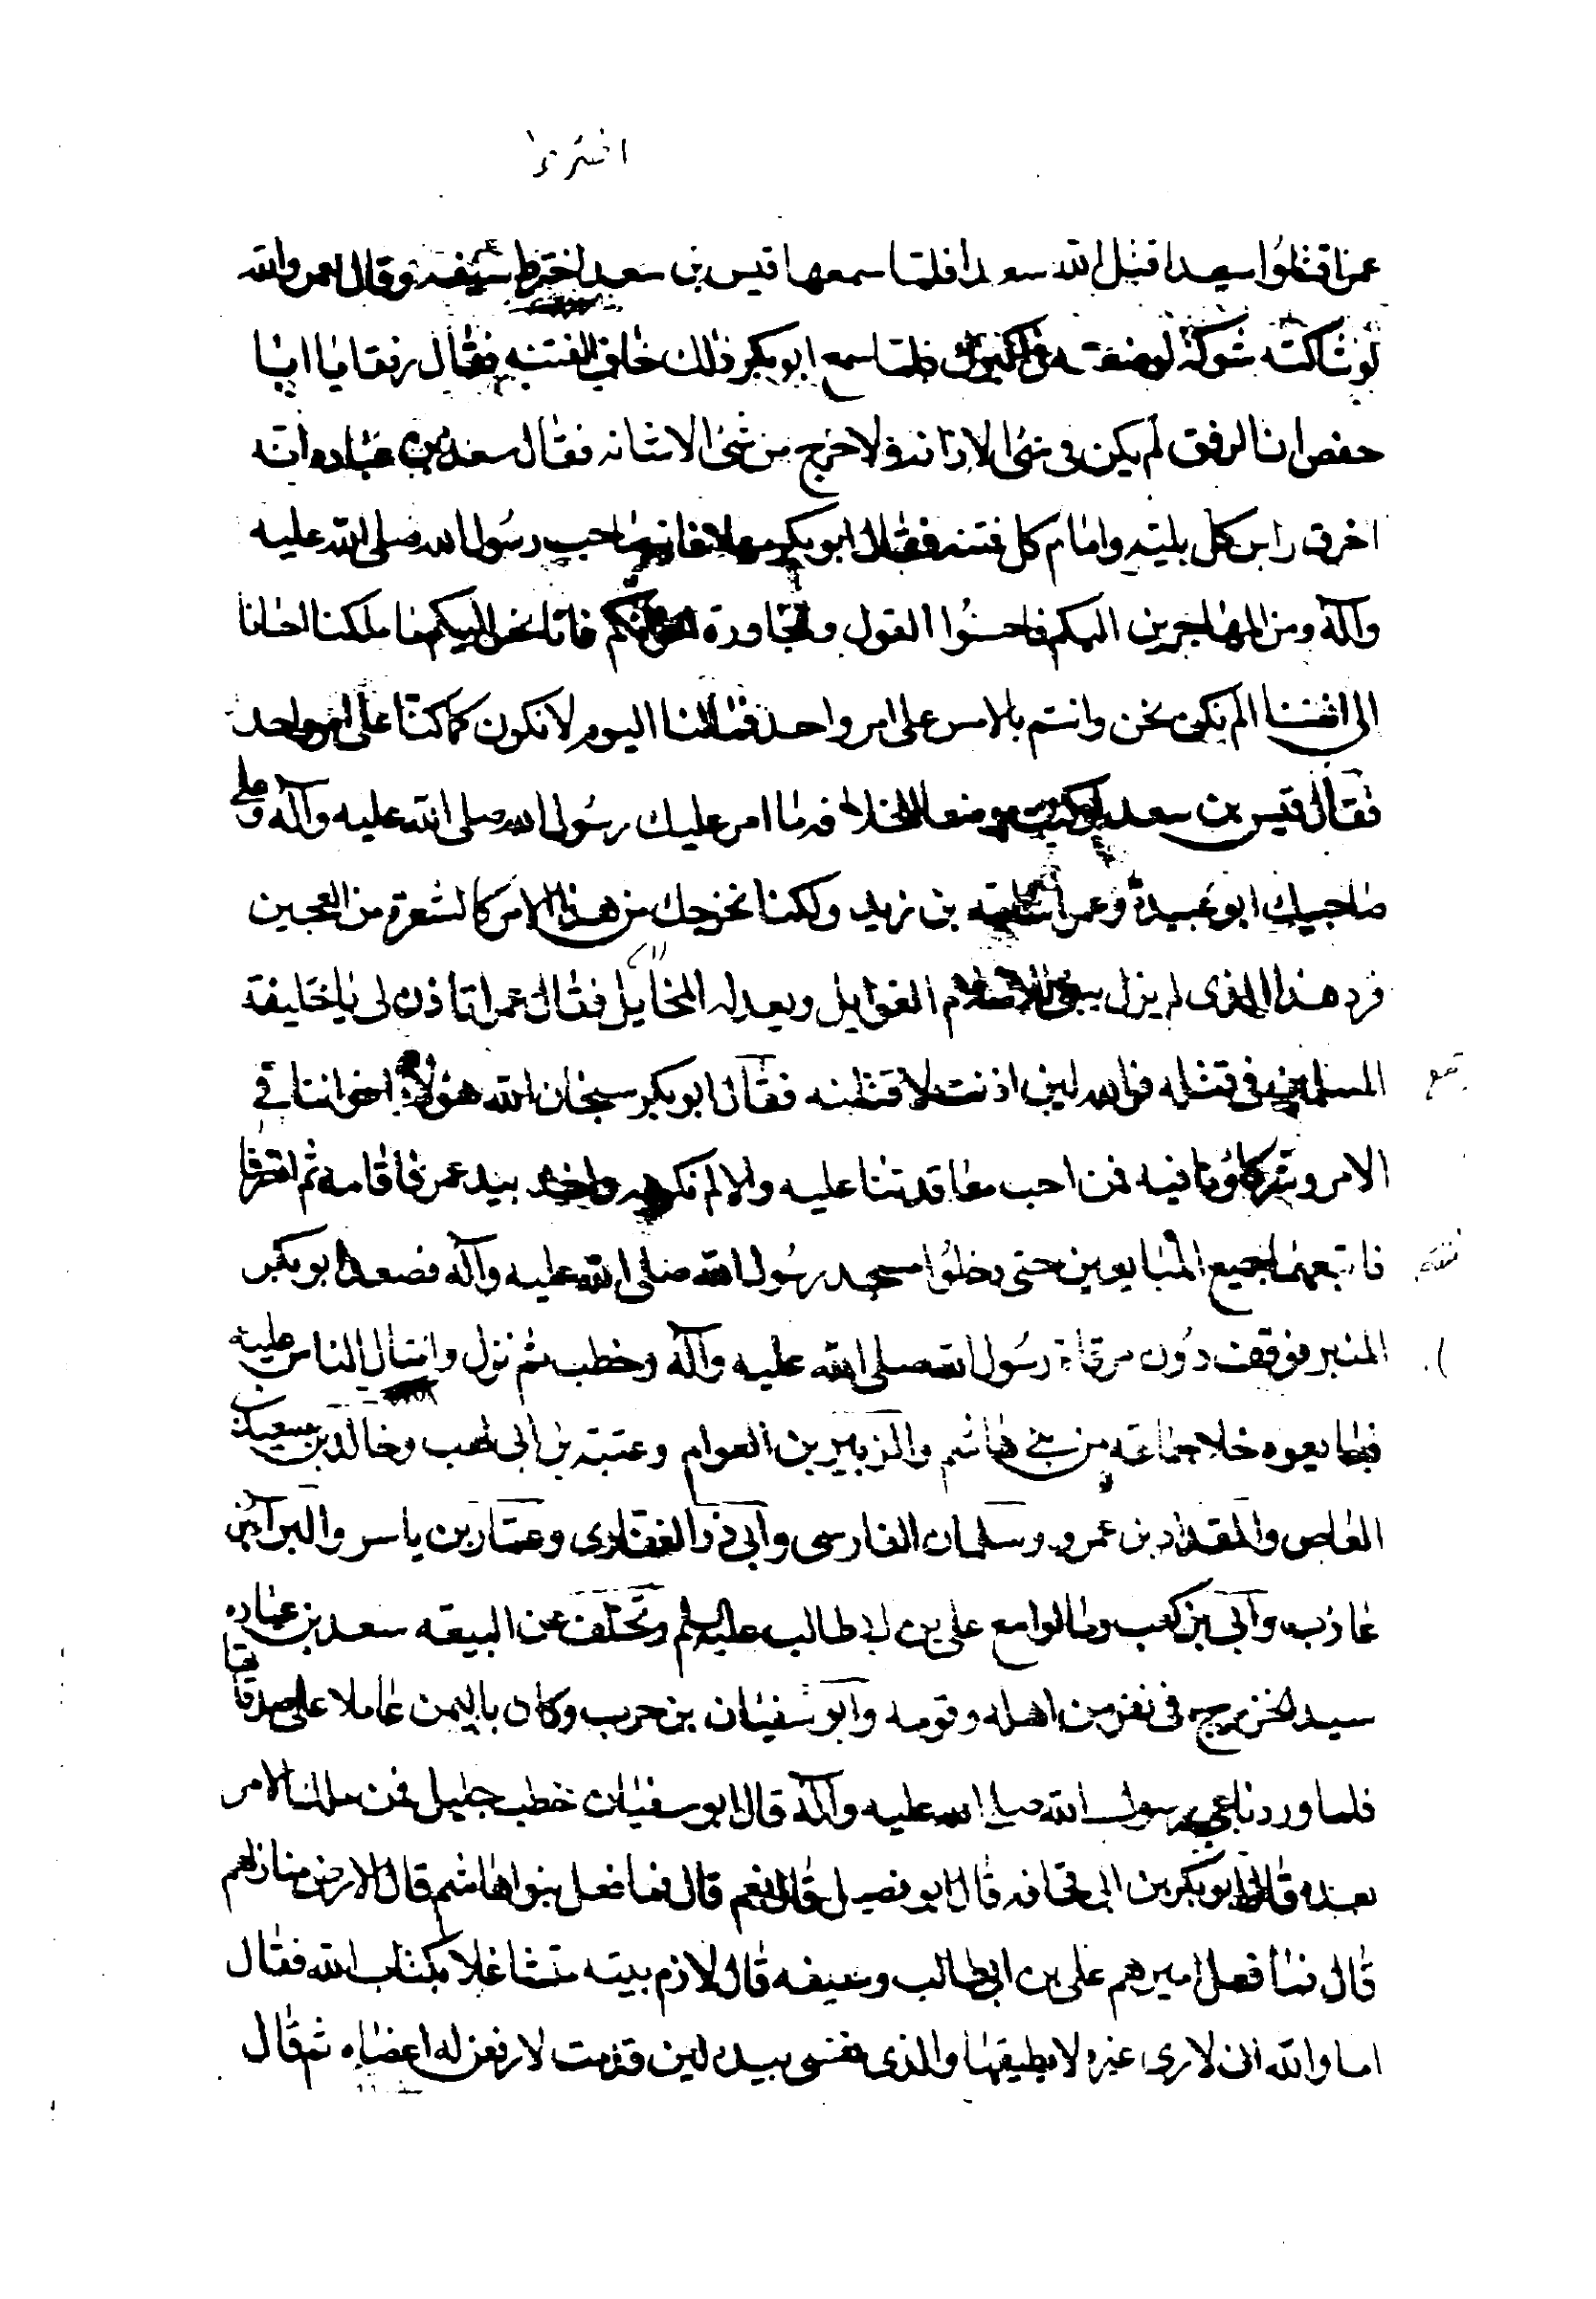 عمر اقتلوا سعدا قتل الله سعدا فلما سمعها قيس بن سعد اخترط سيفه وقال لعمر والله
لو شاكته شوكة لوضعته فلما سمع ابو بكر ذلك خاف الفتنه فقال رفقا يا ابا
حفص ان الرفق لم يكن فى شئ الا زانه ولا خرج من شئ الا شانه فقال سعد بن عباده انه
راس كل بلية وامام كل فتنه فقال ابو بكر مهلا فانه صاحب رسول الله صلى الله عليه
وآله ومن المهاجرين اليكم فاحسنوا القول فانا نحن اليكم
الى الم نكن نحن وانتم بالامس على امر واحد اليوم لا نكون كما كنا على امر واحد
فقال قيس بن سعد لو كنت موضعا للخلافه ما امر عليك رسول الله صلى الله عليه وآله وعلى
صاحبيك ابو عبيدة وعمر اسامة بن زيد ولكنا نخرجك من هذا الامر كالشعرة من العجين
فرد هذا الذى لم يزل يبغى للاسلام الغوايل ويعد له المخايل فقال عمر اتاذن لى يا خليفة
المسلمين فى قتله فوالله لين اذنت لاقتلنه فقال ابو بكر سبحان الله هؤلاء اخواننا فى
الامر وشركاؤنا فيه فمن احب معاقدتنا عليه والا لم نكرهه واخذ بيد عمر فاقامه ثم
فاتبعهما جميع المبايعين حتى دخلوا مسجد رسول الله صلى الله عليه وآله فصعد ابو بكر
المنبر فوقف دون مرقاة رسول الله صلى الله عليه وآله وخطب ثم نزل وانثال الناس عليه
فبايعوه خلا جماعة من بنى هاشم والزبير بن العوام وعتبة بن ابى لهب وخالد بن سعيد بن
العاص والمقداد بن عمرو وسلمان الفارسى وابى ذر الغفارى وعمار بن ياسر والبراء بن
عازب وابى بن كعب ومالوا مع على بن ابى طالب عليه السلم وتخلف عن البيعه سعد بن عباده
سيد الخزرج فى نفر من اهله وقومه وابو سفيان بن حرب وكان باليمن عاملا على صدقاتها
فلما ورد ناعى رسول الله صلى الله عليه وآله قال ابو سفيان خطب جليل فمن ملك الامر
بعده قال ابو بكر بن ابى قحافه قال ابو فصيل قال نعم قال فما فعل بنوا هاشم قال لازمين منازلهم
قال فما فعل اميرهم على بن ابى طالب قال لازم بيته متشاغلا بكتاب الله فقال
اما والله انى لارى غبره لا يطيقها والذى نفسى بيده لين قدمت لارفعن له اعضاه ثم قال